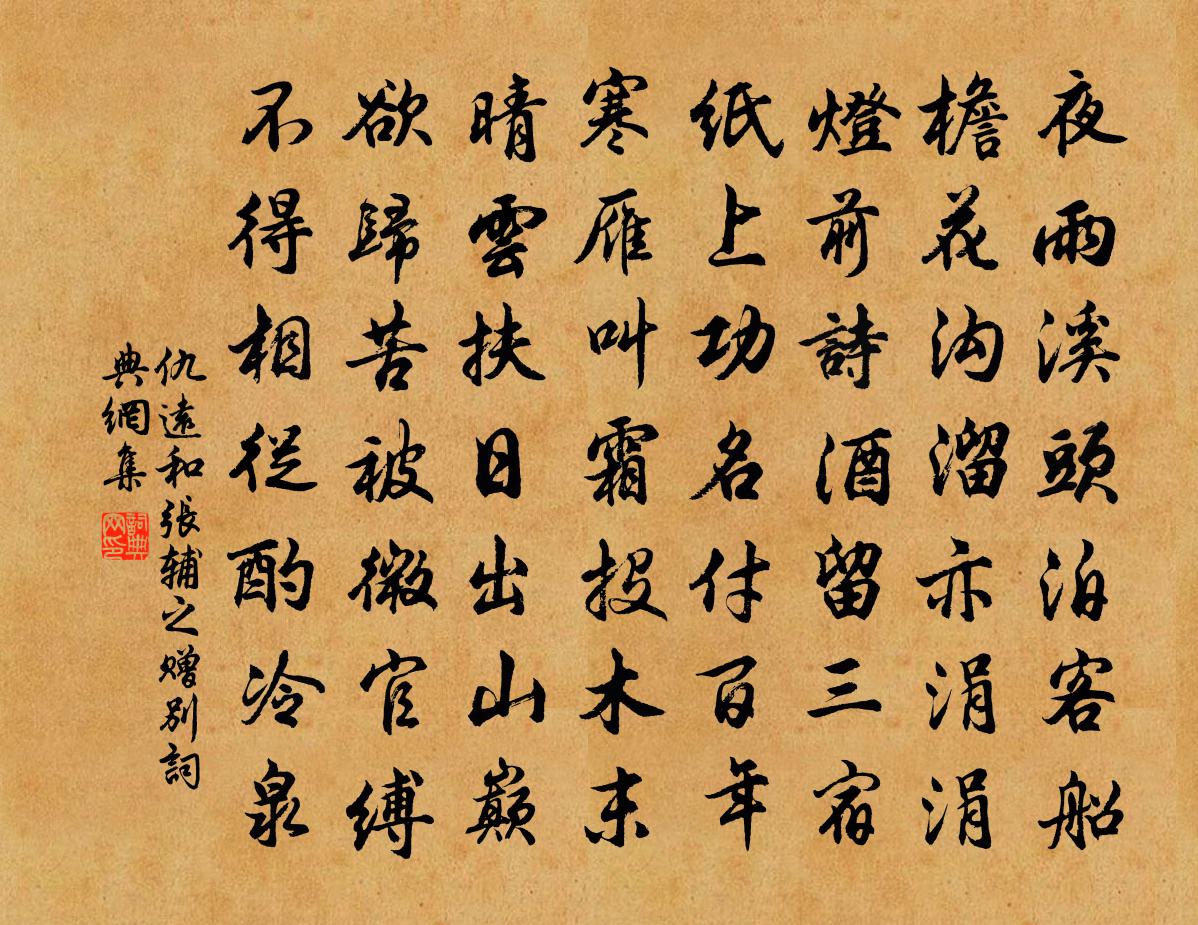 夜雨溪頭泊客船
檐花沟溜亦涓涓
燈前詩酒留三宿
纸上功名付百年
寒雁叫霜投木末
晴雲扶日出山巔
欲歸苦被微官縛
不得相從酌冷泉
仇遠和張辅之赠别詞
典網集
詞典
网印